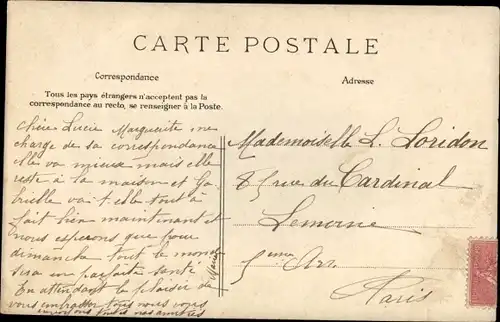 CARTE POSTALE
Correspondance
Adresse
Tous les pays étrangers n'acceptent pas la
correspondance au recto, se renseigner à la Poste.
Chère Lucie Marguerite me
charge de sa correspondance
elle va mieux mais elle
reste à la maison et Ga-
brielle va-t-elle tout à
fait bien maintenant et
nous esperons que pour
dimanche tout le monde
sera en parfaite santé
En attendant le plaisir de
vous embrasser tous nous vous
envoyons tous nos amitiés
Mademoiselle L. Loridon
8 rue du Cardinal
Lemoine
5ème Arr.
Paris